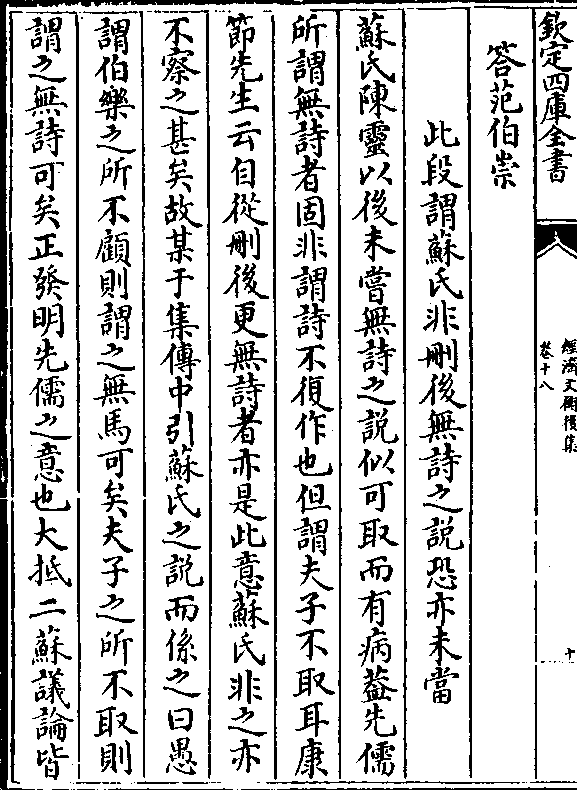 欽定四庫全書
經濟文衡後集
卷十八
十
答范伯崇
此段謂蘇氏非刪後無詩之說恐亦未當
蘇氏陳靈以後未嘗無詩之說似可取而有病葢先儒
所謂無詩者固非謂詩不復作也但謂夫子不取耳康
節先生云自從刪後更無詩者亦是此意蘇氏非之亦
不察之甚矣故某于集傳中引蘇氏之說而係之曰愚
謂伯樂之所不顧則謂之無馬可矣夫子之所不取則
謂之無詩可矣正發明先儒之意也大抵二蘇議論皆